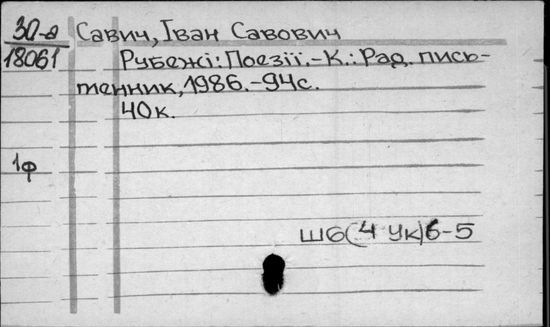 30-а Савич, Іван Савович
18061 Рубежі: Поезії.-К.: Рад. пись-
тенник, 1986.-94с.
40к.
1ф
Ш6(4 Ук)6-5